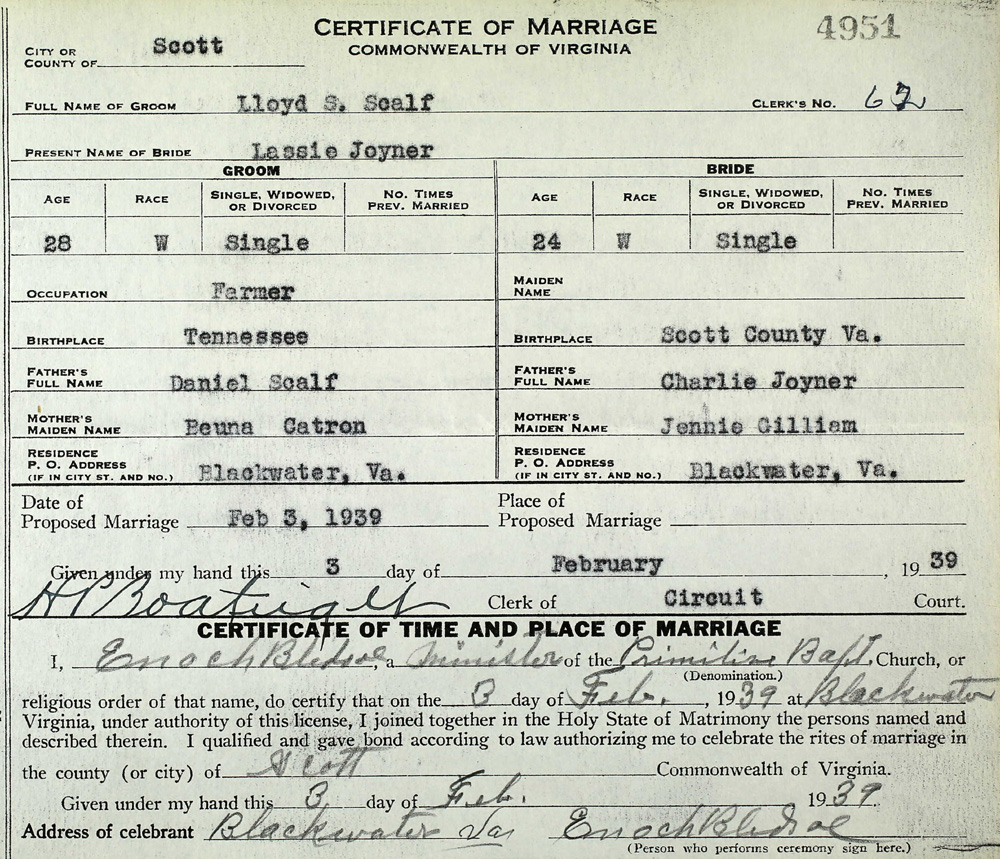 CERTIFICATE OF MARRIAGE 4951
COMMONWEALTH OF VIRGINIA
CITY OR COUNTY OF Scott
FULL NAME OF GROOM Lloyd S. Scalf CLERK'S NO. 62
PRESENT NAME OF BRIDE Lassie Joyner
GROOM BRIDE
AGE RACE SINGLE, WIDOWED, OR DIVORCED NO. TIMES PREV. MARRIED AGE RACE SINGLE, WIDOWED, OR DIVORCED NO. TIMES PREV. MARRIED
28 W Single 24 W Single
OCCUPATION Farmer MAIDEN NAME
BIRTHPLACE Tennessee BIRTHPLACE Scott County Va.
FATHER'S FULL NAME Daniel Scalf FATHER'S FULL NAME Charlie Joyner
MOTHER'S MAIDEN NAME Beuna Catron MOTHER'S MAIDEN NAME Jennie Gilliam
RESIDENCE P. O. ADDRESS (IF IN CITY ST. AND NO.) Blackwater, Va. RESIDENCE P. O. ADDRESS (IF IN CITY ST. AND NO.) Blackwater, Va.
Date of Proposed Marriage Feb 3, 1939 Place of Proposed Marriage
Given under my hand this 3 day of February, 1939
H P Boatright Clerk of Circuit Court.
CERTIFICATE OF TIME AND PLACE OF MARRIAGE
I, Enoch Bledsoe, a Minister of the Primitive Bapt. Church, or
(Denomination.)
religious order of that name, do certify that on the 3 day of Feb., 1939 at Blackwater
Virginia, under authority of this license, I joined together in the Holy State of Matrimony the persons named and
described therein. I qualified and gave bond according to law authorizing me to celebrate the rites of marriage in
the county (or city) of Scott Commonwealth of Virginia.
Given under my hand this 3 day of Feb. 1939.
Address of celebrant Blackwater Va Enoch Bledsoe
(Person who performs ceremony sign here.)